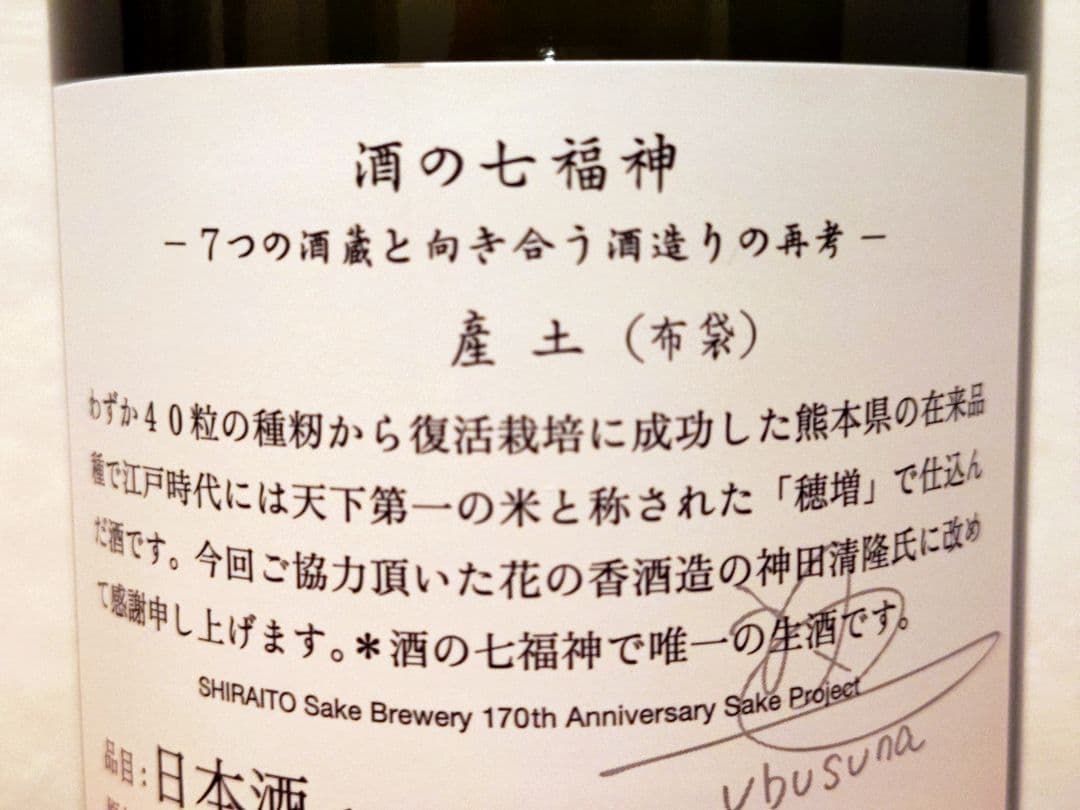 酒の七福神
－7つの酒蔵と向き合う酒造りの再考－
産土（布袋）
わずか４０粒の種籾から復活栽培に成功した熊本県の在来品
種で江戸時代には天下第一の米と称された「穂増」で仕込ん
だ酒です。今回ご協力頂いた花の香酒造の神田清隆氏に改め
て感謝申し上げます。＊酒の七福神で唯一の生酒です。
SHIRAITO Sake Brewery 170th Anniversary Sake Project
ubusuna
品目：日本酒